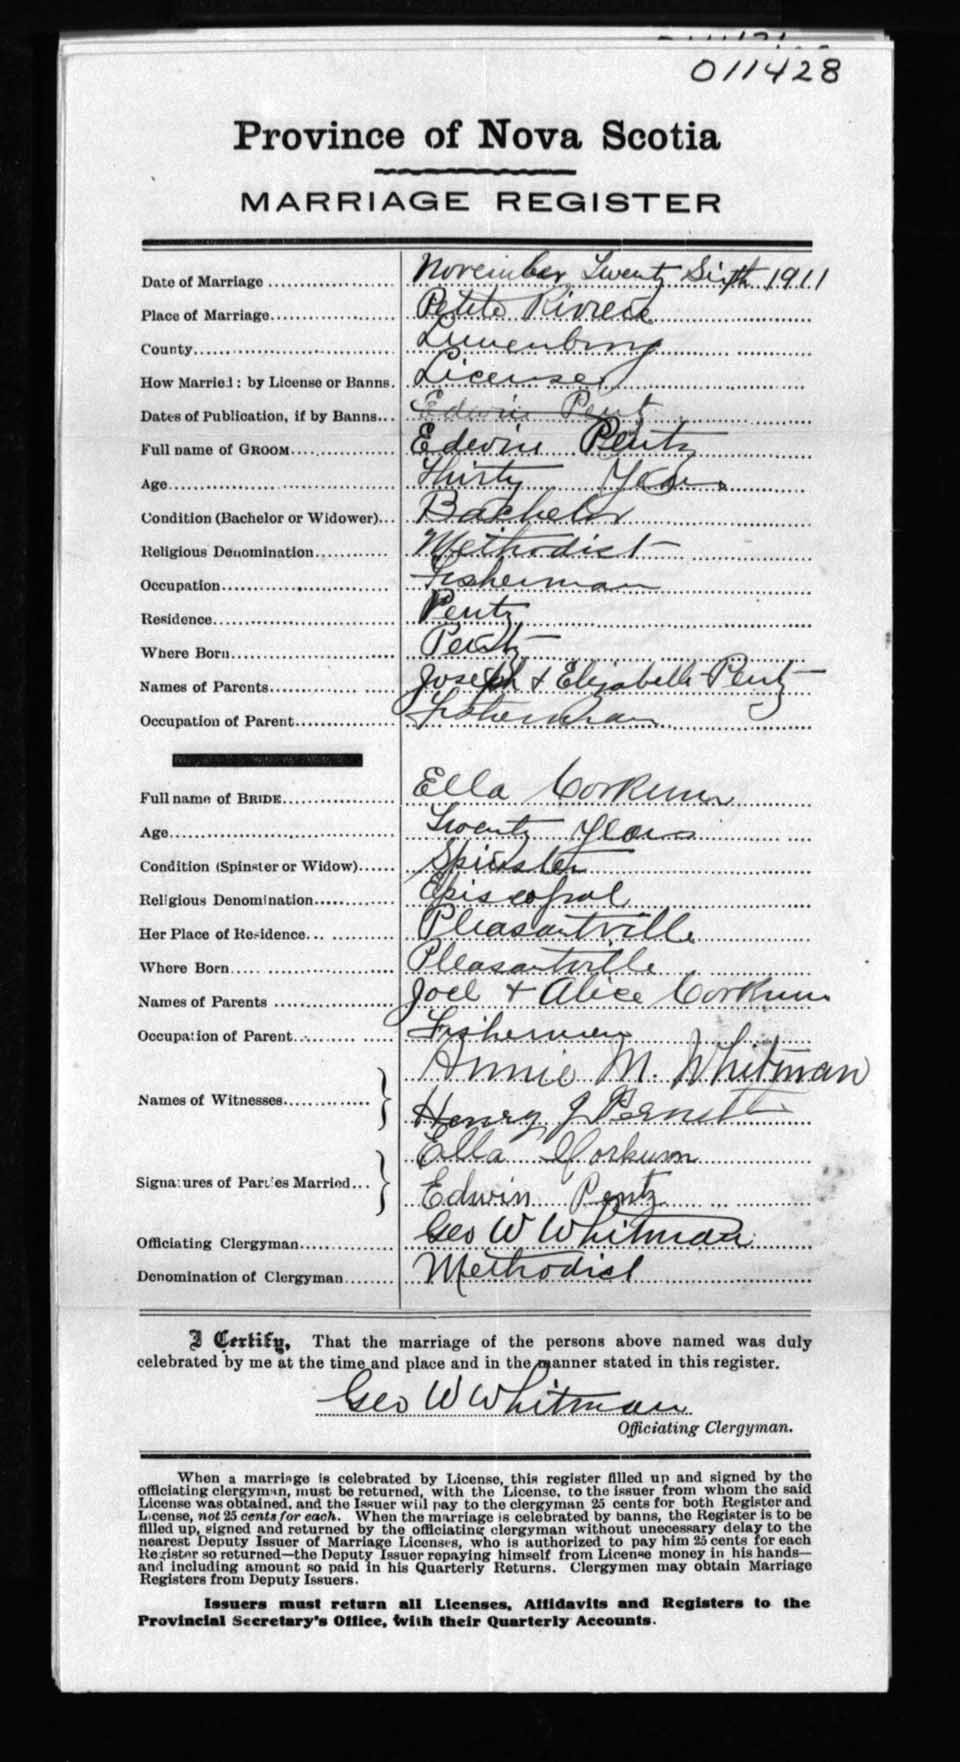 011428
Province of Nova Scotia
MARRIAGE REGISTER
Date of Marriage November Twenty Sixth 1911
Place of Marriage Petite Riviere
County Lunenburg
How Married: by License or Banns. License
Dates of Publication, if by Banns Edwin Pentz
Full name of GROOM Edwin Pentz
Age Thirty Years
Condition (Bachelor or Widower) Bachelor
Religious Denomination Methodist
Occupation Fisherman
Residence Pentz
Where Born Pentz
Names of Parents Joseph & Elizabeth Pentz
Occupation of Parent Fisherman
Full name of BRIDE Ella Corkum
Age Twenty Years
Condition (Spinster or Widow) Spinster
Religious Denomination Episcopal
Her Place of Residence Pleasantville
Where Born Pleasantville
Names of Parents Joel & Alice Corkum
Occupation of Parent Fisherman
Annie M. Whitman
Names of Witnesses
Henry J
Ella Corkum
Signatures of Parties Married
Edwin Pentz
Officiating Clergyman Geo W Whitman
Denomination of Clergyman Methodist
I Certify, That the marriage of the persons above named was duly
celebrated by me at the time and place and in the manner stated in this register.
Geo W Whitman
Officiating Clergyman.
When a marriage is celebrated by License, this register filled up and signed by the
officiating clergyman, must be returned, with the License, to the issuer from whom the said
License was obtained, and the Issuer will pay to the clergyman 25 cents for both Register and
License, not 25 cents for each. When the marriage is celebrated by banns, the Register is to be
filled up, signed and returned by the officiating clergyman without unnecessary delay to the
nearest Deputy Issuer of Marriage Licenses, who is authorized to pay him 25 cents for each
Register so returned—the Deputy Issuer repaying himself from License money in his hands—
and including amount so paid in his Quarterly Returns. Clergymen may obtain Marriage
Registers from Deputy Issuers.
Issuers must return all Licenses, Affidavits and Registers to the
Provincial Secretary's Office, with their Quarterly Accounts.